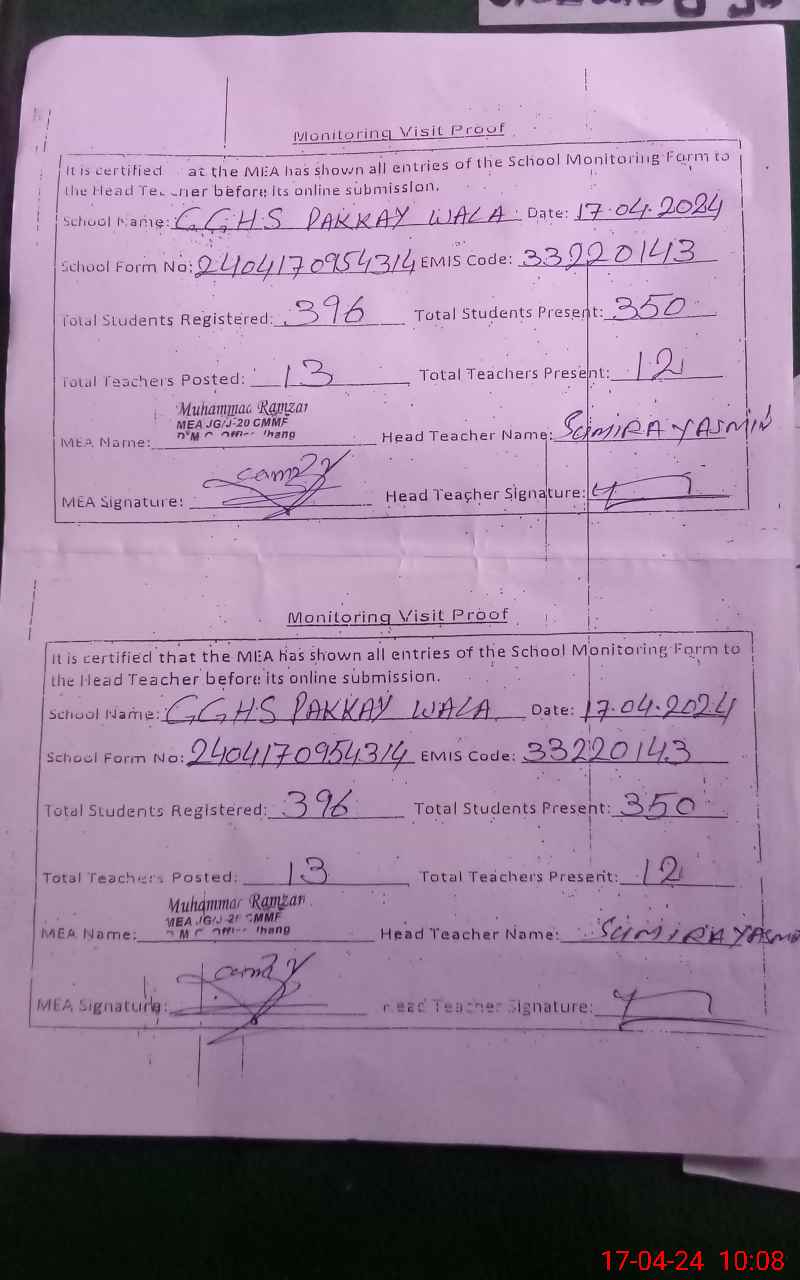 Monitoring Visit Proof
It is certified at the MEA has shown all entries of the School Monitoring Form to
the Head Te ner before its online submission.
School Name: GGHS PAKKAY WALA Date: 17.04.2024
School Form No: 2404170954314 EMIS Code: 33220143
Total Students Registered: 396 Total Students Present: 350
Total Teachers Posted: 13 Total Teachers Present: 12
Muhammad Ramzan
MEA JG/J-20 CMMF
MEA Name: Head Teacher Name: SUMIRA YASMIN
MEA Signature: Head Teacher Signature:
Monitoring Visit Proof
It is certified that the MEA has shown all entries of the School Monitoring Form to
the Head Teacher before its online submission.
School Name: GGHS PAKKAY WALA Date: 17.04.2024
School Form No: 2404170954314 EMIS Code: 33220143
Total Students Registered: 396 Total Students Present: 350
Total Teachers Posted: 13 Total Teachers Present: 12
Muhammad Ramzan
MEA JG/J-20 CMMF
MEA Name: Head Teacher Name: SUMIRA YASMI
MEA Signature: Head Teacher Signature:
17-04-24 10:08